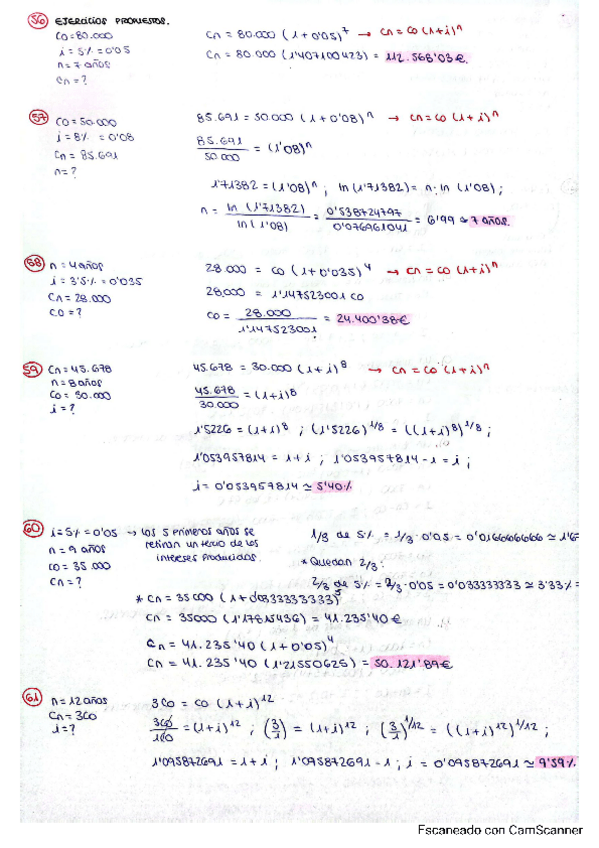 56 EJERCICIOS PROPUESTOS.
Co = 80.000
i = 5% = 0'05
n = 7 años
Cn = ?
Cn = 80.000 (1 + 0'05)⁷ → Cn = Co (1+i)ⁿ
Cn = 80.000 (1'407100423) = 112.568'03€.
57 Co = 50.000
i = 8% = 0'08
Cn = 85.691
n = ?
85.691 = 50.000 (1 + 0'08)ⁿ → Cn = Co (1+i)ⁿ
85.691 / 50.000 = (1'08)ⁿ
1'71382 = (1'08)ⁿ ; ln (1'71382) = n · ln (1'08) ;
n = ln (1'71382) / ln (1'08) = 0'538724797 / 0'076961041 = 6'99 ≃ 7 años.
58 n = 4 años
i = 3'5% = 0'035
Cn = 28.000
Co = ?
28.000 = Co (1 + 0'035)⁴ → Cn = Co (1+i)ⁿ
28.000 = 1'147523001 Co
Co = 28.000 / 1'147523001 = 24.400'38€
59 Cn = 45.678
n = 8 años
Co = 30.000
i = ?
45.678 = 30.000 (1+i)⁸ → Cn = Co (1+i)ⁿ
45.678 / 30.000 = (1+i)⁸
1'5226 = (1+i)⁸ ; (1'5226)¹/⁸ = ((1+i)⁸)¹/⁸ ;
1'053957814 = 1+i ; 1'053957814 - 1 = i ;
i = 0'053957814 ≃ 5'40%
60 i = 5% = 0'05 → Los 5 primeros años se
n = 9 años retiran un tercio de los
Co = 35.000 intereses producidos.
Cn = ?
1/3 de 5% = 1/3 · 0'05 = 0'016666666 ≃ 1'6
* Quedan 2/3:
2/3 de 5% = 2/3 · 0'05 = 0'033333333 ≃ 3'33% =
* Cn = 35000 (1 + 0'0333333333)⁵
Cn = 35000 (1'17815436) = 41.235'40€
Cn = 41.235'40 (1 + 0'05)⁴
Cn = 41.235'40 (1'21550625) = 50.121'89€
61 n = 12 años
Cn = 3Co
i = ?
3Co = Co (1+i)¹²
3Co / 1Co = (1+i)¹² ; (3/1) = (1+i)¹² ; (3/1)¹/¹² = ((1+i)¹²)¹/¹² ;
1'095872691 = 1+i ; 1'095872691 - 1 ; i = 0'095872691 ≃ 9'59%
Escaneado con CamScanner